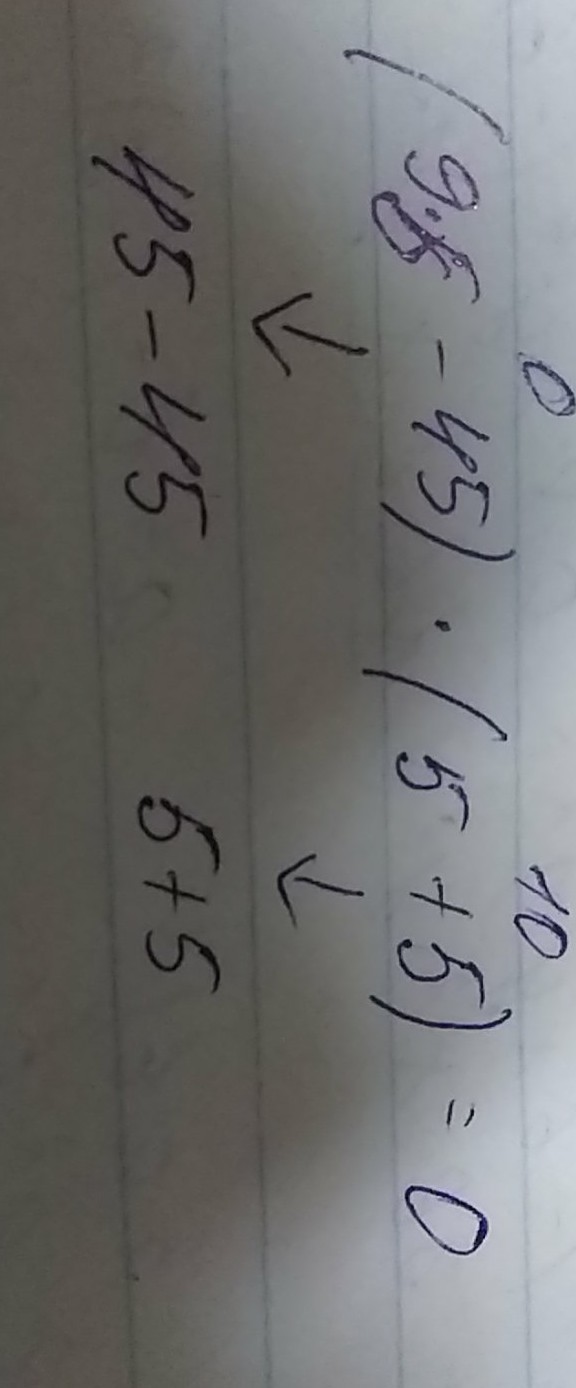 0 10
(9·5 - 45) · (5 + 5) = 0
↓ ↓
45 - 45 5 + 5